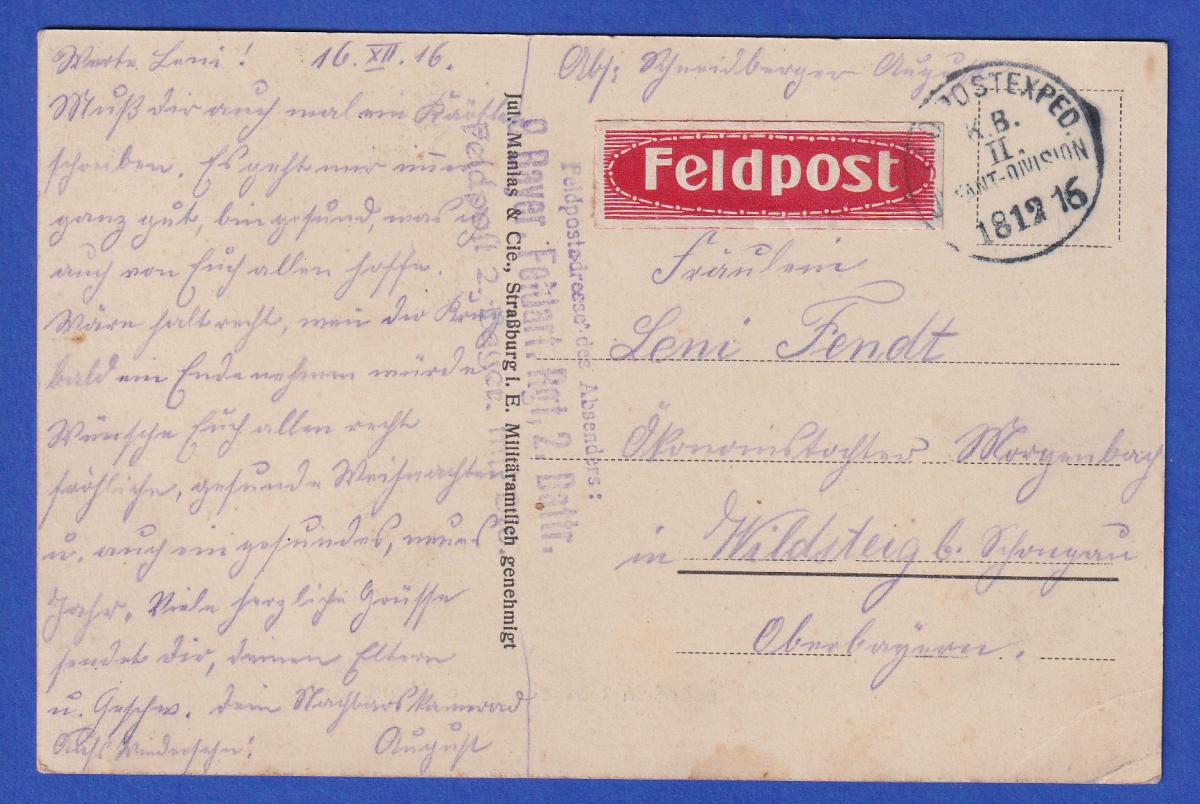 Werte Leni! 16.XII.16.
Muß dir auch mal ein Kärtl.
schreiben. Es geht mir immer
ganz gut, bin gesund, was ich
auch von Euch allen hoffe.
Wäre halt recht, wen der Krieg
bald ein Ende nehmen würde
Wünsche Euch allen recht
fröhliche, gesunde Weihnachten
u. auch ein gesundes, neues
Jahr. Viele herzliche Grüsse
sendet dir, deinen Eltern
u. Geschw. dein Nachbarskamerad
Aufs Wiedersehn! August
Jul. Manias & Cie., Straßburg i. E. Militäramtlich genehmigt
Feldpostadresse des Absenders:
Bayer. Feldart. Rgt., 2. Battr.
Feldpost 2.
Abs: Schneidberger August
Feldpost
POSTEXPED.
K.B.
II.
FANT.-DIVISION
18 12 16
Fräulein
Leni Fendt
Ökonomstochter Morgenbach
in Wildsteig b. Schongau
Oberbayern.